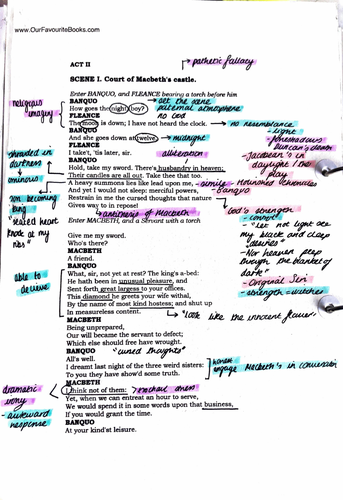 www.OurFavouriteBooks.com
pathetic fallacy
ACT II
SCENE I. Court of Macbeth's castle.
Enter BANQUO, and FLEANCE bearing a torch before him
religious imagery
BANQUO
set the scene
How goes the night, boy?
paternal atmosphere
FLEANCE
no God
The moon is down; I have not heard the clock.
no resemblance
- light
BANQUO
foreshadows Duncan's death
And she goes down at twelve.
midnight
FLEANCE
I take't, 'tis later, sir.
alliteration
- Jacobean's in daylight / the play
shrouded in darkness
BANQUO
Hold, take my sword. There's husbandry in heaven;
Their candles are all out. Take thee that too.
ominous
A heavy summons lies like lead upon me,
simile
And yet I would not sleep: merciful powers,
Banquo
Restrain in me the cursed thoughts that nature
Gives way to in repose!
God's strength
antithesis of Macbeth
Enter MACBETH, and a Servant with a torch
non becoming king
"seated heart knock at my ribs"
- "Let not light see my black and deep desires"
Give me my sword.
Who's there?
MACBETH
A friend.
- Nor heaven peep through the blanket of dark"
BANQUO
What, sir, not yet at rest? The king's a-bed:
He hath been in unusual pleasure, and
- Original Sin
Sent forth great largess to your offices.
able to deceive
This diamond he greets your wife withal,
- strength = witches
By the name of most kind hostess; and shut up
In measureless content.
"look like the innocent flower.
MACBETH
Being unprepared,
Our will became the servant to defect;
Which else should free have wrought.
BANQUO
"cursed thoughts"
All's well.
I dreamt last night of the three weird sisters:
honest
To you they have show'd some truth.
engage Macbeth's in conversation
MACBETH
dramatic irony
I think not of them:
Yet, when we can entreat an hour to serve,
- awkward response
We would spend it in some words upon that business,
If you would grant the time.
BANQUO
At your kind'st leisure.